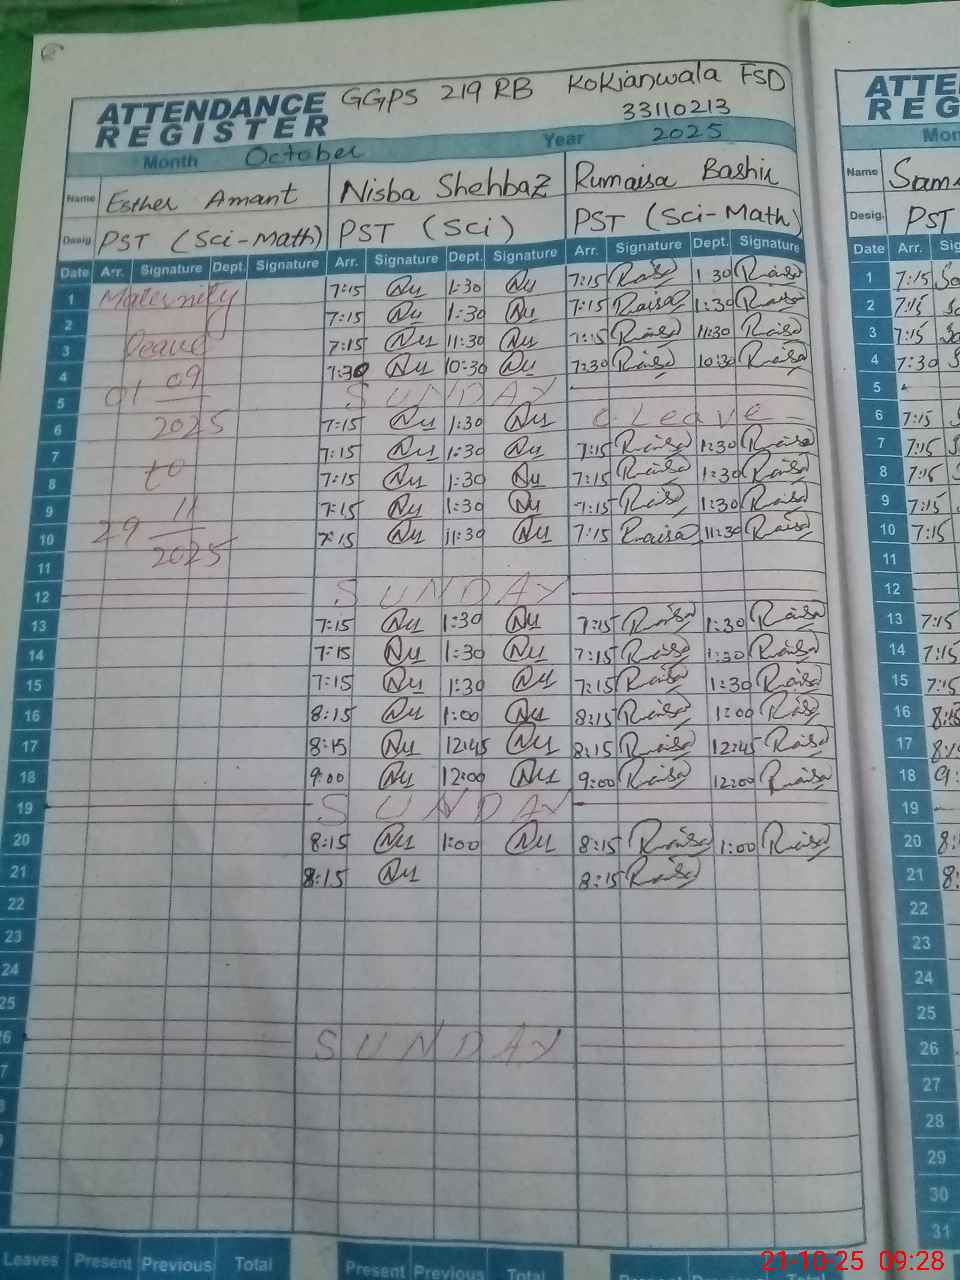 ATTENDANCE REGISTER
GGPS 219 RB KoKianwala FSD
33110213
Month October Year 2025
Name Esther Amant Nisba Shehbaz Rumaisa Bashir
Desig. PST (Sci-Math) PST (Sci) PST (Sci-Math)
Date Arr. Signature Dept. Signature Arr. Signature Dept. Signature Arr. Signature Dept. Signature
1 Maternity 7:15 Nu 1:30 Nu 7:15 Raisa 1:30 Raisa
2 7:15 Nu 1:30 Nu 7:15 Raisa 1:30 Raisa
3 Leave 7:15 Nu 11:30 Nu 7:15 Raisa 11:30 Raisa
4 01 09 7:30 Nu 10:30 Nu 7:30 Raisa 10:30 Raisa
5 SUNDAY
6 2025 7:15 Nu 1:30 Nu C Leave
7 7:15 Nu 1:30 Nu 7:15 Raisa 1:30 Raisa
8 to 7:15 Nu 1:30 Nu 7:15 Raisa 1:30 Raisa
9 11 7:15 Nu 1:30 Nu 7:15 Raisa 1:30 Raisa
10 29 7:15 Nu 11:30 Nu 7:15 Raisa 11:30 Raisa
11 2025
12 SUNDAY
13 7:15 Nu 1:30 Nu 7:15 Raisa 1:30 Raisa
14 7:15 Nu 1:30 Nu 7:15 Raisa 1:30 Raisa
15 7:15 Nu 1:30 Nu 7:15 Raisa 1:30 Raisa
16 8:15 Nu 1:00 Nu 8:15 Raisa 1:00 Raisa
17 8:15 Nu 12:45 Nu 8:15 Raisa 12:45 Raisa
18 9:00 Nu 12:00 Nu 9:00 Raisa 12:00 Raisa
19 SUNDAY
20 8:15 Nu 1:00 Nu 8:15 Raisa 1:00 Raisa
21 8:15 Nu 8:15 Raisa
22
23
24
25
26 SUNDAY
Leaves Present Previous Total Present Previous Total
Name
Desig. PST
Date Arr.
1 7:15
2 7:15
3 7:15
4 7:30
5
6 7:15
7 7:15
8 7:15
9 7:15
10 7:15
11
12
13 7:15
14 7:15
15 7:15
16 8:15
17
18 9:
19
20
21
22
23
24
25
26
27
28
29
30
31
21-10-25 09:28